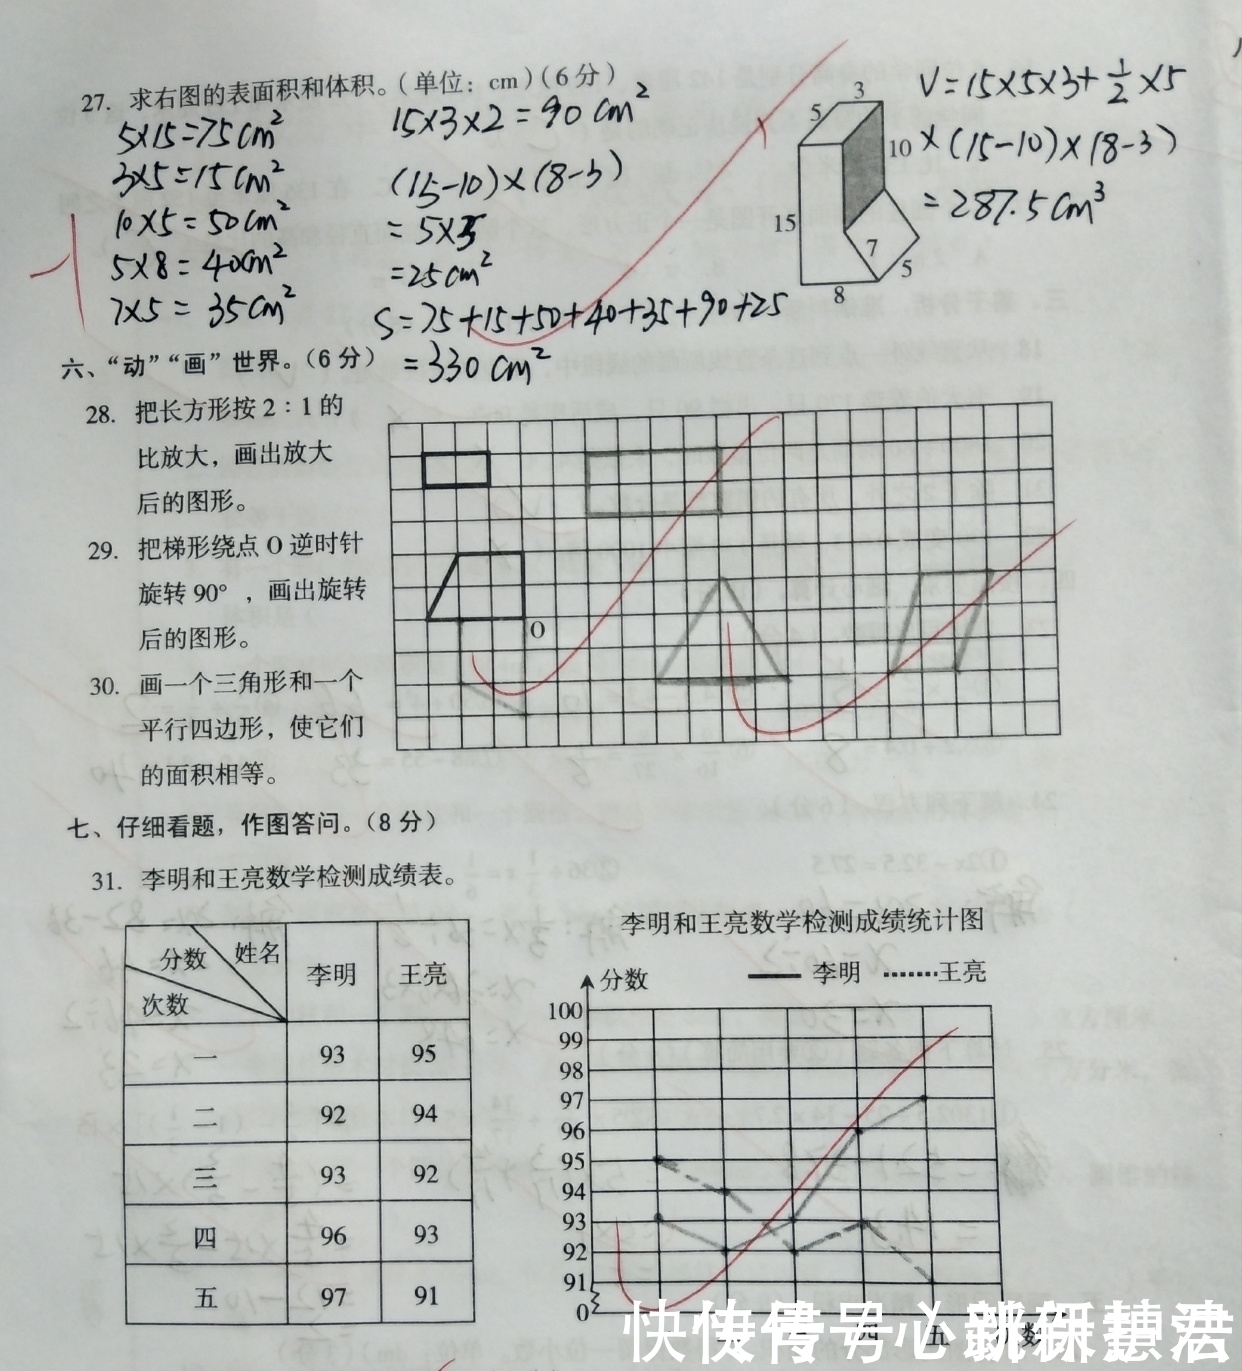 27. 求右图的表面积和体积。(单位：cm)(6分)
5×15=75cm²
3×5=15cm²
10×5=50cm²
5×8=40cm²
7×5=35cm²
15×3×2=90cm²
(15-10)×(8-3)
=5×5
=25cm²
S=75+15+50+40+35+90+25
=330cm²
3
5
10
15
7
5
8
V=15×5×3+1/2×5
×(15-10)×(8-3)
=287.5cm³
六、“动”“画”世界。(6分)
28. 把长方形按2：1的
比放大，画出放大
后的图形。
29. 把梯形绕点O逆时针
旋转90°，画出旋转
后的图形。
30. 画一个三角形和一个
平行四边形，使它们
的面积相等。
O
七、仔细看题，作图答问。(8分)
31. 李明和王亮数学检测成绩表。
分数 姓名 次数 李明 王亮
一 93 95
二 92 94
三 93 92
四 96 93
五 97 91
李明和王亮数学检测成绩统计图
分数 李明 王亮
100
99
98
97
96
95
94
93
92
91
0
四 五